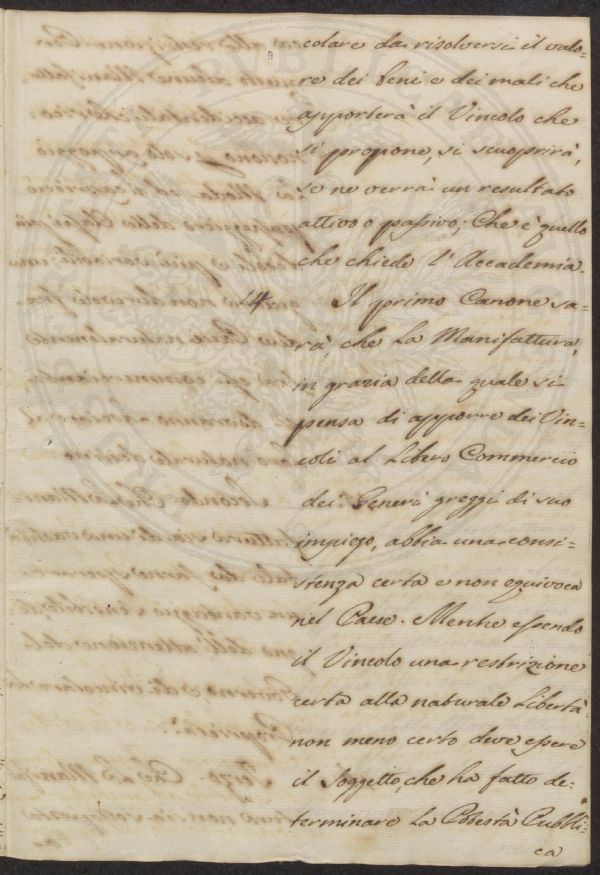 colare da risolversi il valo=
re dei beni e dei mali che
apporterà il Vincolo che
si propone, si scuoprirà,
se ne verrà un resultato
attivo o passivo; Che è quello
che chiede l'Accademia.
14. Il primo Canone sa=
rà, che La Manifattura,
in grazia della quale si
pensa di apporre dei Vin=
coli al Libero Commercio
dei Generi greggi di suo
impiego, abbia una consi=
stenza certa e non equivoca
nel Paese. Mentre essendo
il Vincolo una restrizione
certa alla naturale Libertà
non meno certo deve essere
il Soggetto, che ha fatto de=
terminare La Potestà Pubbli=
ca